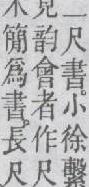 一尺書小徐繫
見韵會者作尺
簡爲書。長尺